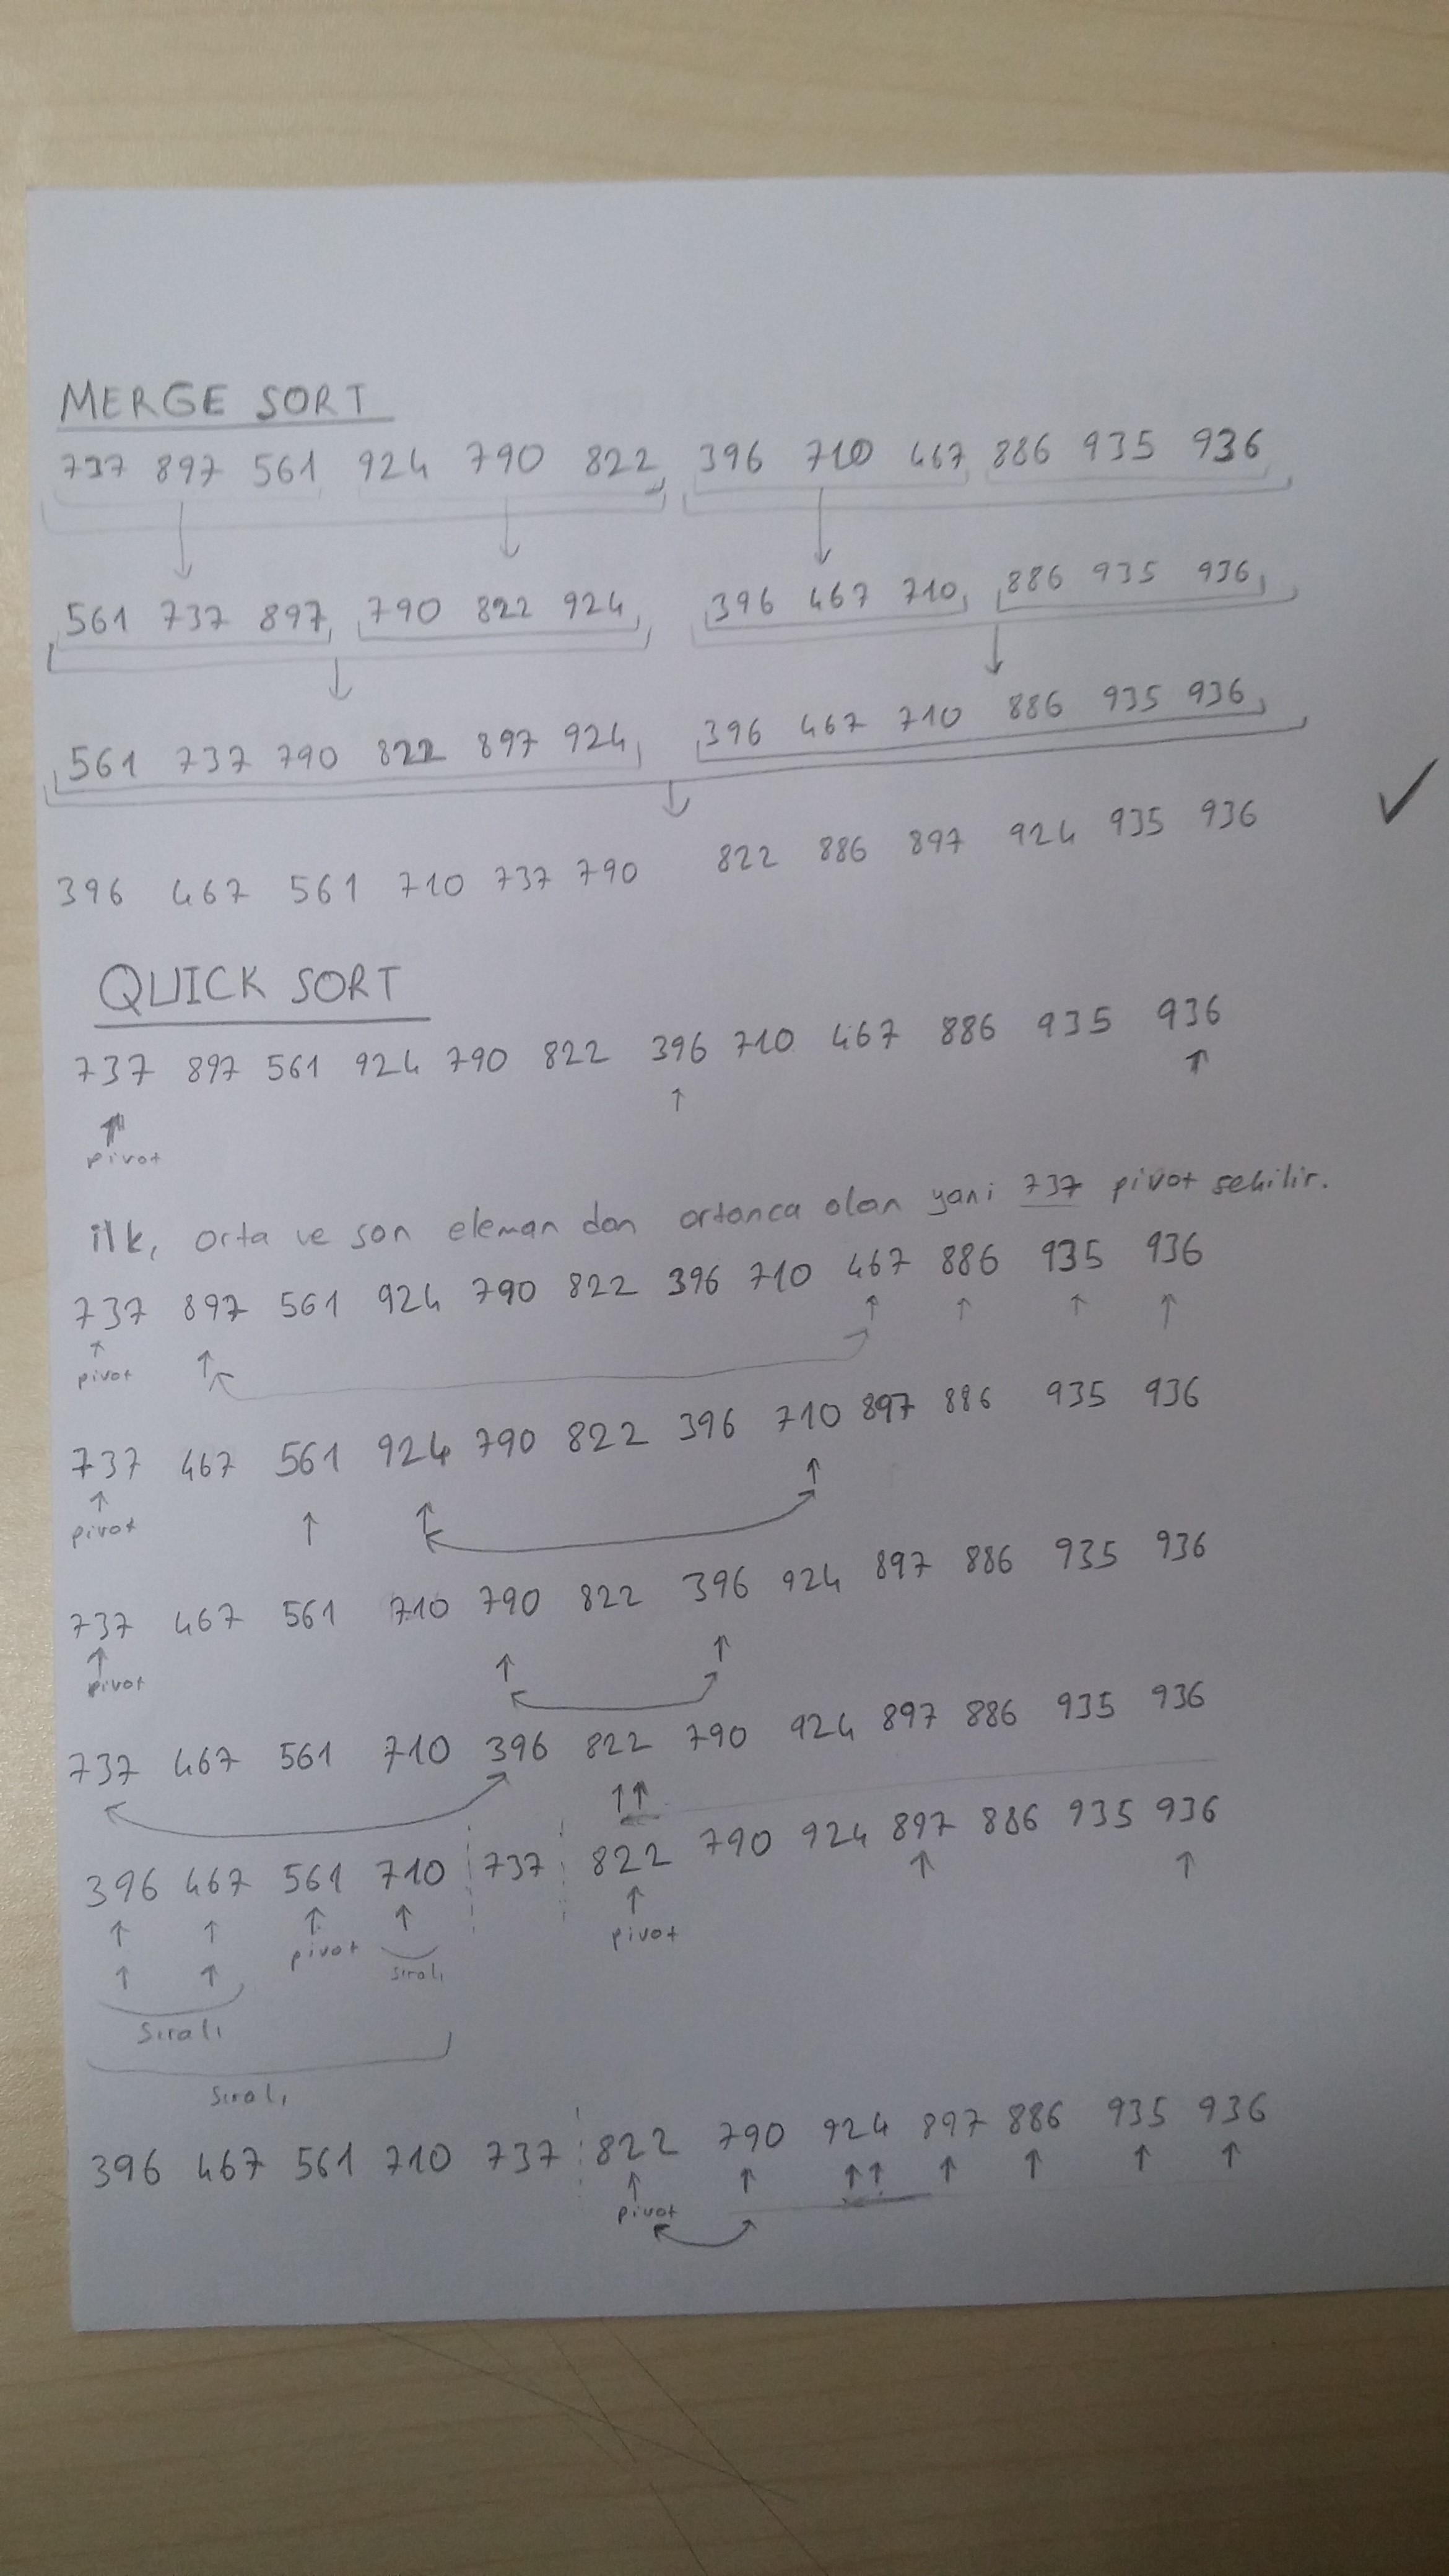 MERGE SORT
737 897 561 924 790 822 396 710 467 886 935 936
561 737 897 790 822 924 396 467 710 886 935 936
561 737 790 822 897 924 396 467 710 886 935 936
396 467 561 710 737 790 822 886 897 924 935 936
QUICK SORT
737 897 561 924 790 822 396 710 467 886 935 936
pivot
ilk, orta ve son eleman dan ortanca olan yani 737 pivot seçilir.
737 897 561 924 790 822 396 710 467 886 935 936
pivot
737 467 561 924 790 822 396 710 897 886 935 936
pivot
737 467 561 710 790 822 396 924 897 886 935 936
pivot
737 467 561 710 396 822 790 924 897 886 935 936
396 467 561 710 737 822 790 924 897 886 935 936
pivot pivot
sıralı
sıralı
sıralı
396 467 561 710 737 822 790 924 897 886 935 936
pivot